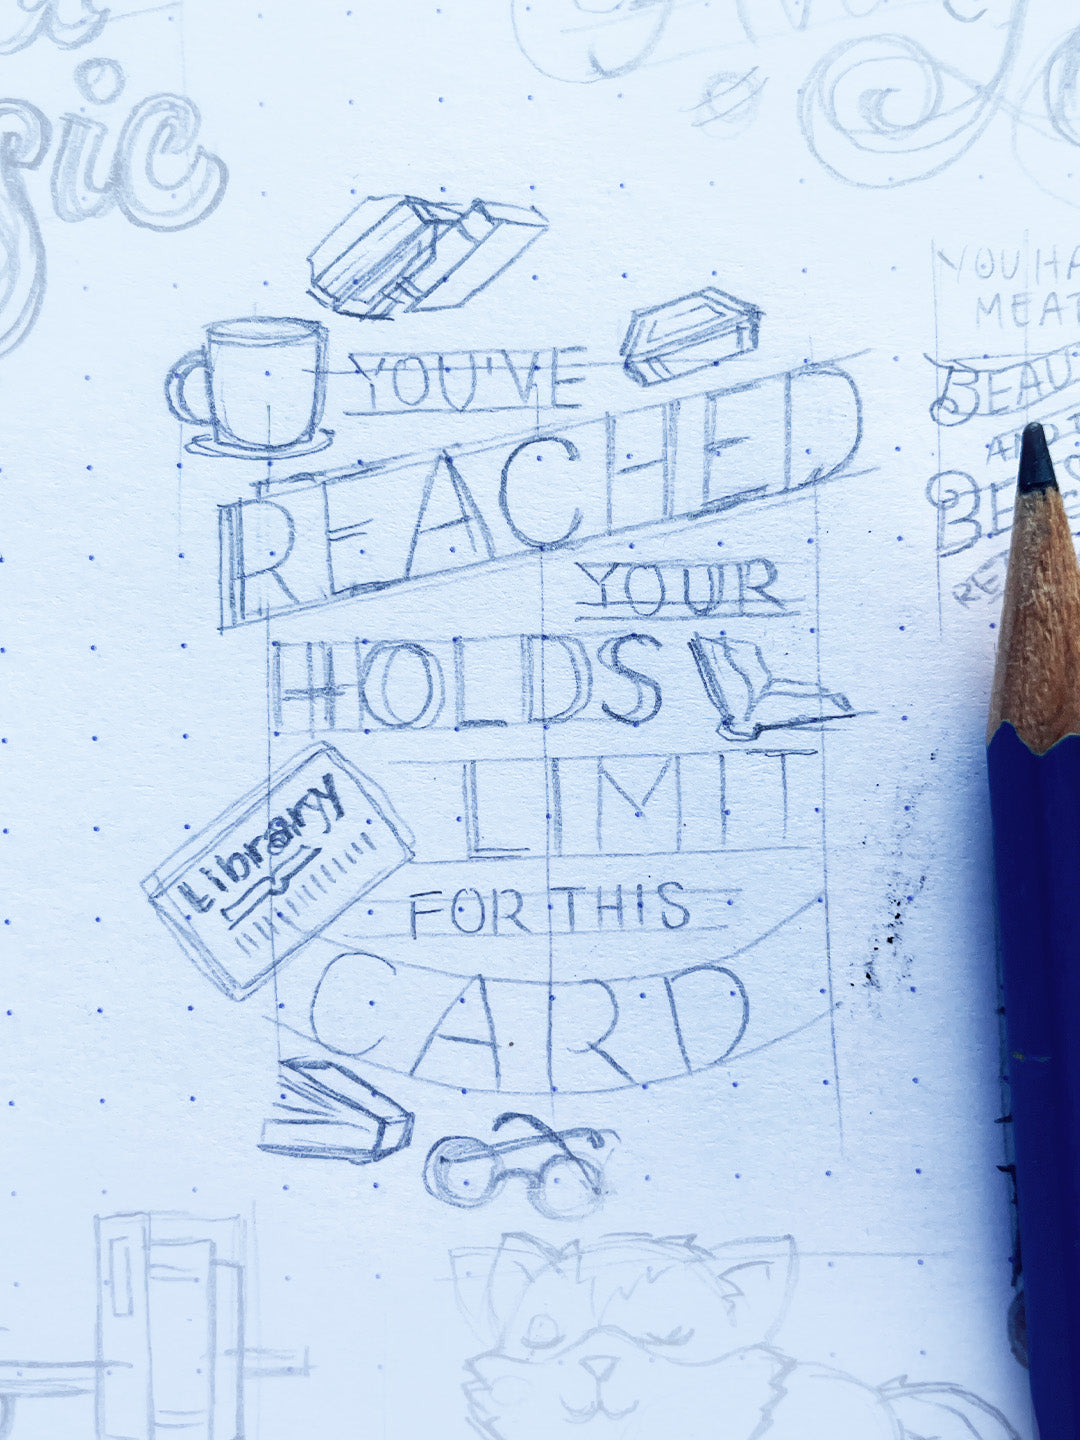 gic
YOU'VE
REACHED
YOUR
HOLDS
LIMIT
FOR THIS
CARD
Library
YOU HA
MEAT
BEAU
AND
BE
RE